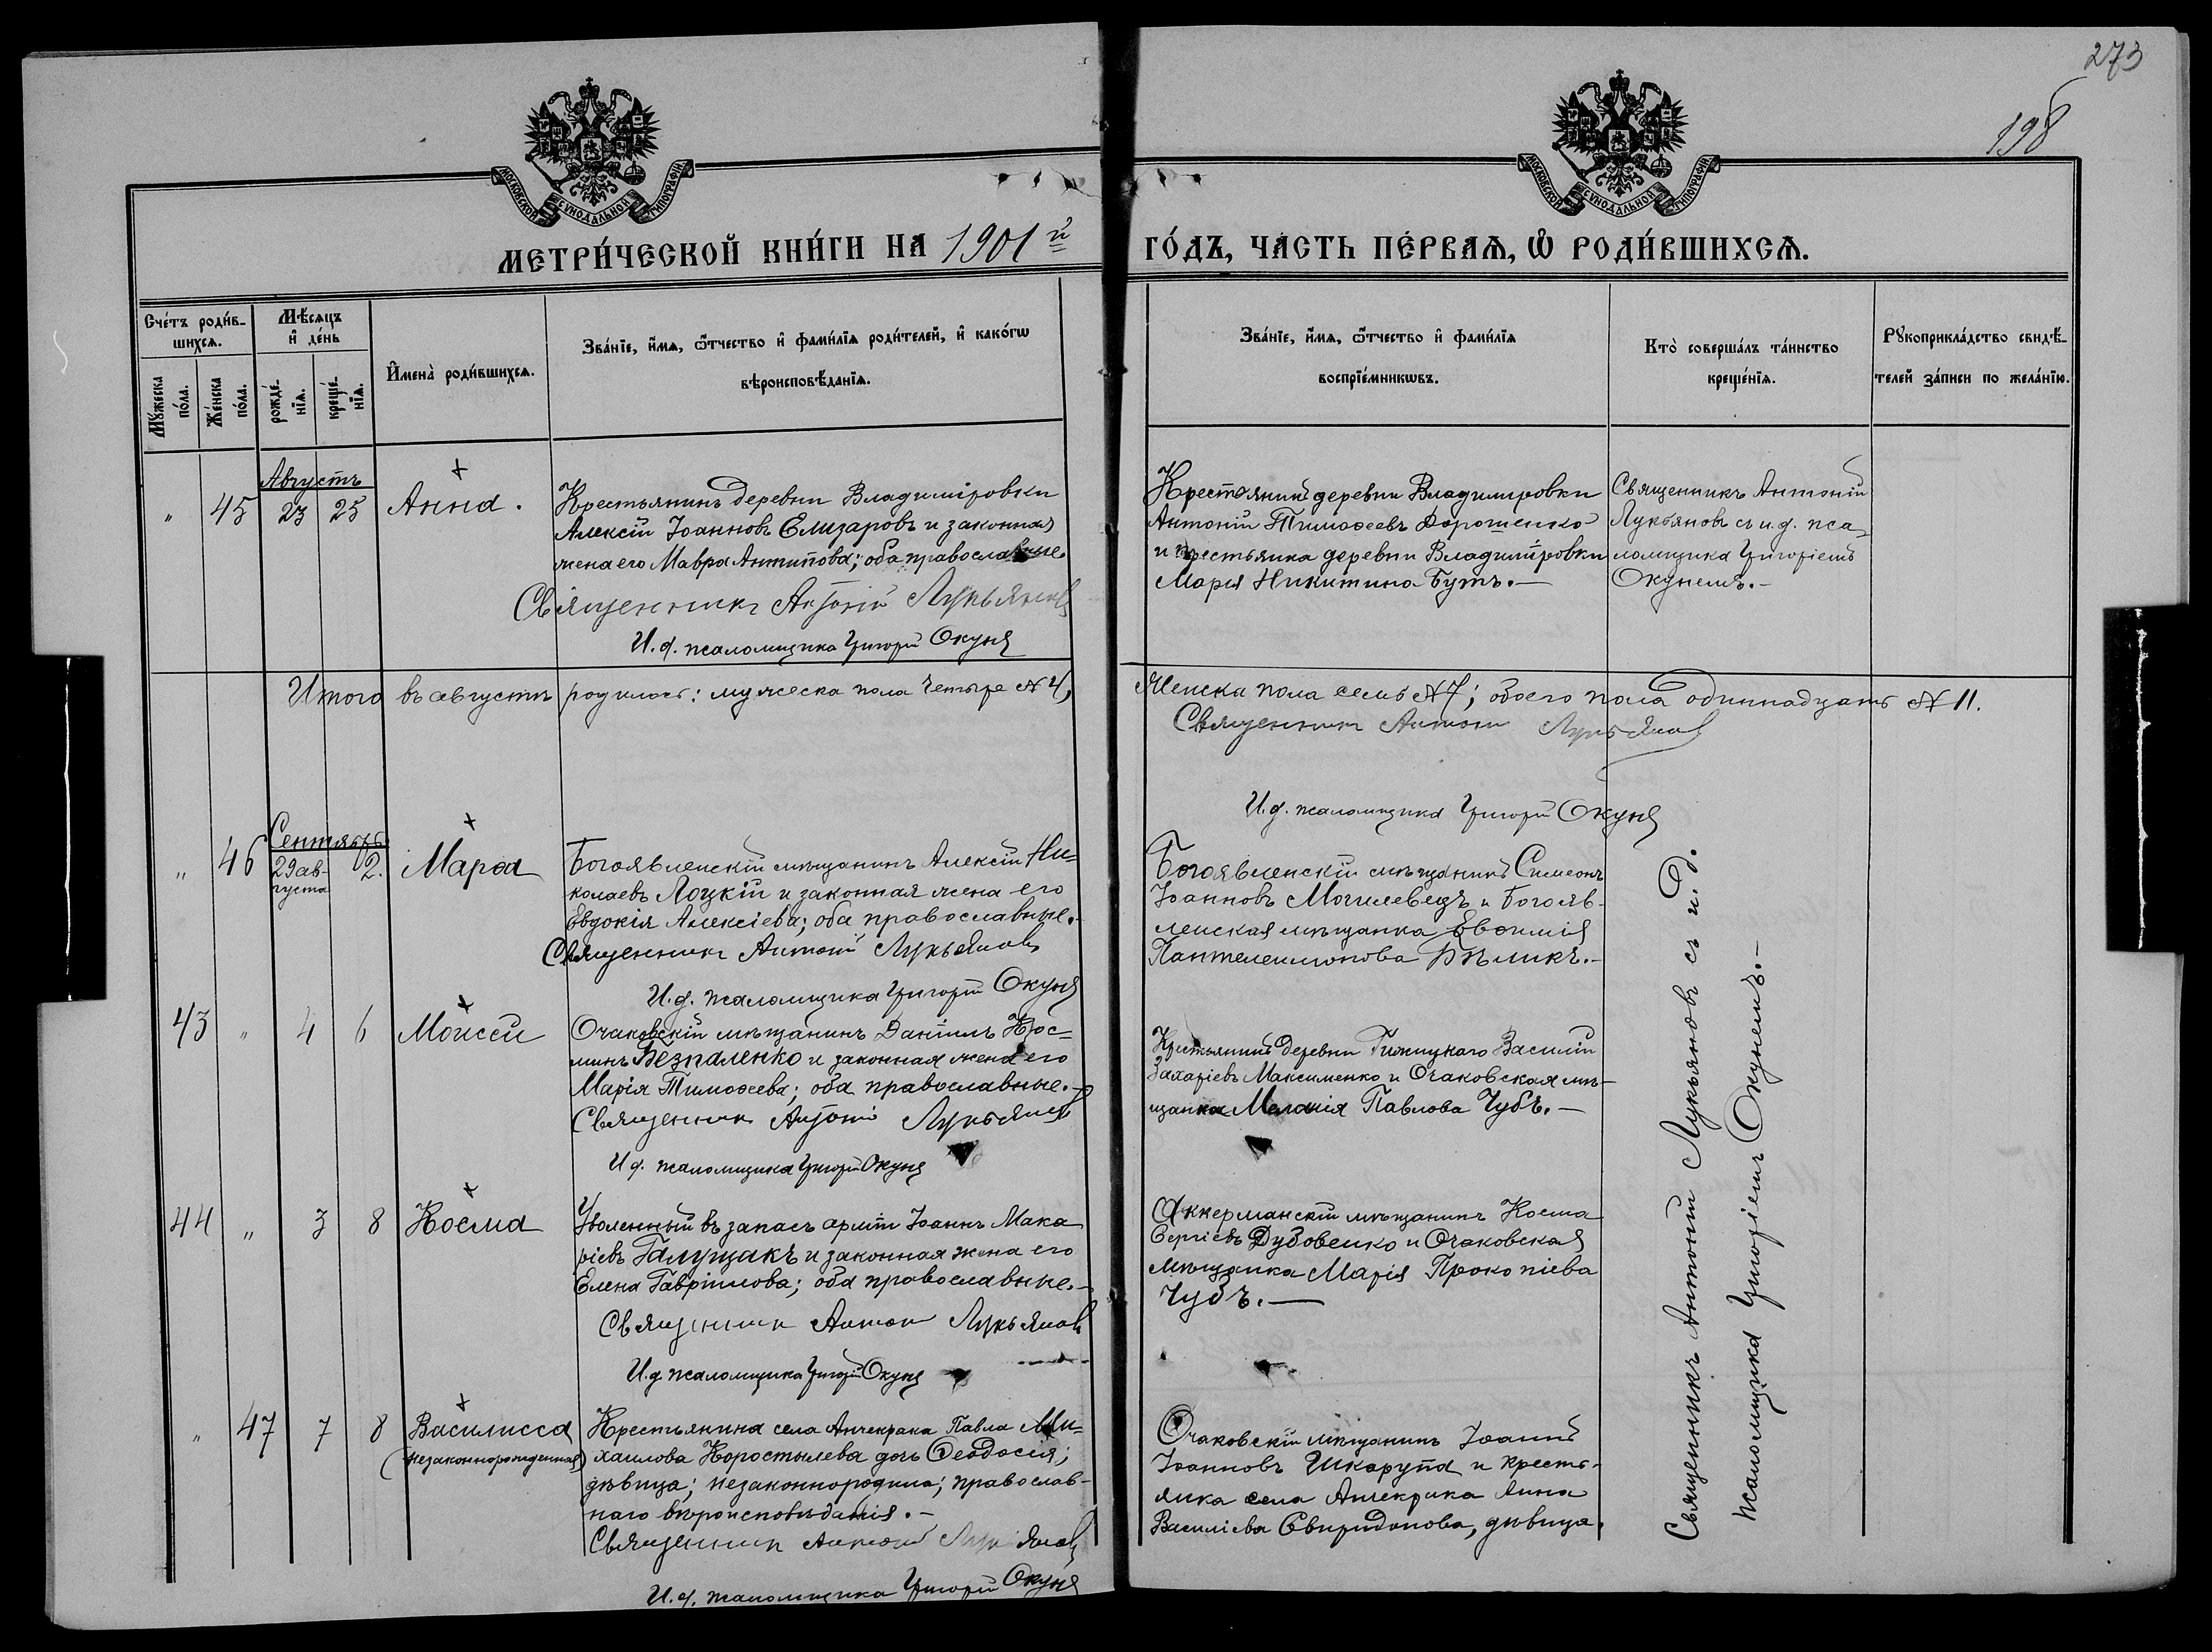 273
198
МОСКОВСКОЙ СѴНОДАЛЬНОЙ ТИПОГРАФІИ
МОСКОВСКОЙ СѴНОДАЛЬНОЙ ТИПОГРАФІИ
МЕТРИ́ЧЕСКОЙ КНИ́ГИ НА 1901й ГО́ДЪ, ЧА́СТЬ ПЕ́РВАѦ, Ѡ҆ РОДИ́ВШИХСѦ.
Сче́тъ роди́в-
шихсѧ.
Мꙋ́жеска по́ла.
Же́нска по́ла.
Мѣ́сѧцъ
и҆ де́нь
рожде́-
нїѧ.
креще́-
нїѧ.
И҆мена̀ роди́вшихсѧ.
Зва́нїе, и҆́мѧ, ѻ҆́тчество и҆ фами́лїѧ роди́телей, и҆ како́гѡ
вѣроисповѣ́данїѧ.
Зва́нїе, и҆́мѧ, ѻ҆́тчество и҆ фами́лїѧ
воспрїе́мникѡвъ.
Кто̀ соверша́лъ та́инство
креще́нїѧ.
Рꙋкоприкла́дство свидѣ́-
телей за́писи по жела́нїю.
Августъ
" 45 23 25 Анна.
Крестьянинъ деревни Владиміровки
Алексій Іоанновъ Елизаровъ и законная
жена его Мавра Антипова; оба православные.
Священникъ Антоній Лукьяновъ
И. д. псаломщика Григорій Окунь
Крестьянинъ деревни Владиміровки
Антоній Тимоѳеевъ Дорошенко
и крестьянка деревни Владиміровки
Марія Никитина Бутъ.—
Священникъ Антоній
Лукьяновъ съ и.д. пса-
ломщика Григоріемъ
Окунемъ.—
Итого въ августѣ родилось: мужеска пола четыре №4, женска пола семь №7; обоего пола одиннадцать №11.
Священникъ Антоній Лукьяновъ
И.д. псаломщика Григорій Окунь
Сентябрь
" 46 29 ав-
густа 2. Марѳа
Богоявленскій мѣщанинъ Алексій Ни-
колаевъ Лоцкій и законная жена его
Евдокія Алексіева; оба православные.
Священникъ Антоній Лукьяновъ
И.д. псаломщика Григорій Окунь
Богоявленскій мѣщанинъ Симеонъ
Іоанновъ Могилевецъ и Богояв-
ленская мѣщанка Евѳимія
Пантелеимонова Бѣликъ.—
43 " 4 6 Моисей
Очаковскій мѣщанинъ Даніилъ Кос-
минъ Безпаленко и законная жена его
Марія Тимоѳеева; оба православные.—
Священникъ Антоній Лукьяновъ
И д. псаломщика Григорій Окунь
Крестьянинъ деревни Гижицкаго Василій
Захаріевъ Максименко и Очаковская мѣ-
щанка Меланія Павлова Чубъ.—
44 " 3 8 Косма
Уволенный въ запасъ арміи Іоаннъ Мака
ріевъ Галущакъ и законная жена его
Елена Гавріилова; оба православные.—
Священникъ Антоній Лукьяновъ
И.д псаломщика Григорій Окунь
Аккерманскій мѣщанинъ Косма
Сергіевъ Дубовенко и Очаковская
мѣщанка Марія Прокопіева
Чубъ.—
" 47 7 8 Василисса
(незаконнорожденная)
Крестьянина села Анчекрака Павла Ми-
хаилова Коростылева дочь Ѳеодосія;
дѣвица; незаконнородила; православ-
наго вѣроисповѣданія.—
Священникъ Антоній Лукьяновъ
И.д. псаломщика Григорій Окунь
Очаковскій мѣщанинъ Іоаннъ
Іоанновъ Шкарупа и кресть-
янка села Анчекрака Анна
Василіева Свиридонова, дѣвица.
Священникъ Антоній Лукьяновъ съ и.д.
псаломщика Григоріемъ Окунемъ.—